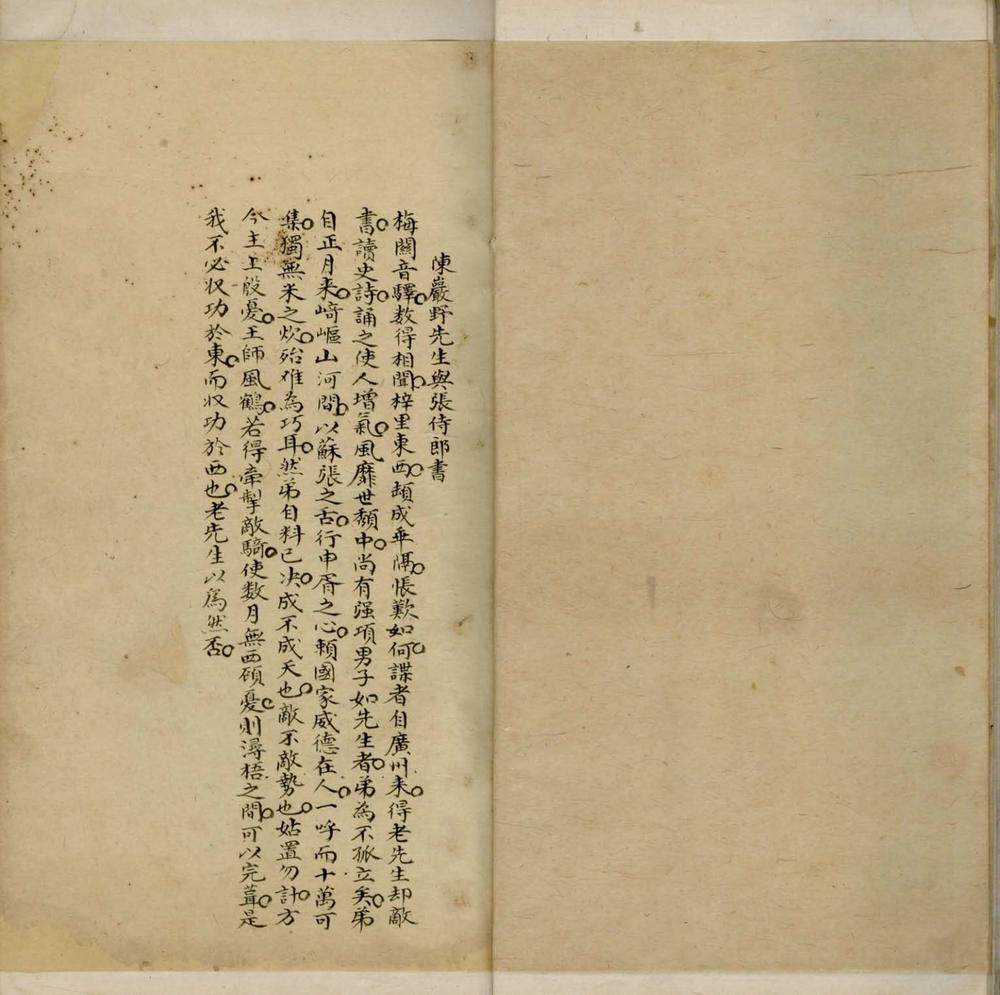 陳巖野先生與張侍郎書
梅關音驛数得相聞梓里東西頓成乖隔悵歎如何諜者自廣州来得老先生却敵
書讀史詩誦之使人增氣風靡世頹中尚有强項男子如先生者弟為不孤立矣弟
自正月来崎嶇山河間以蘇張之舌行申胥之心賴國家威德在人一呼而十萬可
集獨無米之炊殆难為巧耳然弟自料已决成不成天也敵不敵勢也姑置勿計方
今主上殷憂王師風鶴若得牽掣敵騎使数月無西顧憂則潯梧之間可以完葺是
我不必収功於東而収功於西也老先生以為然否